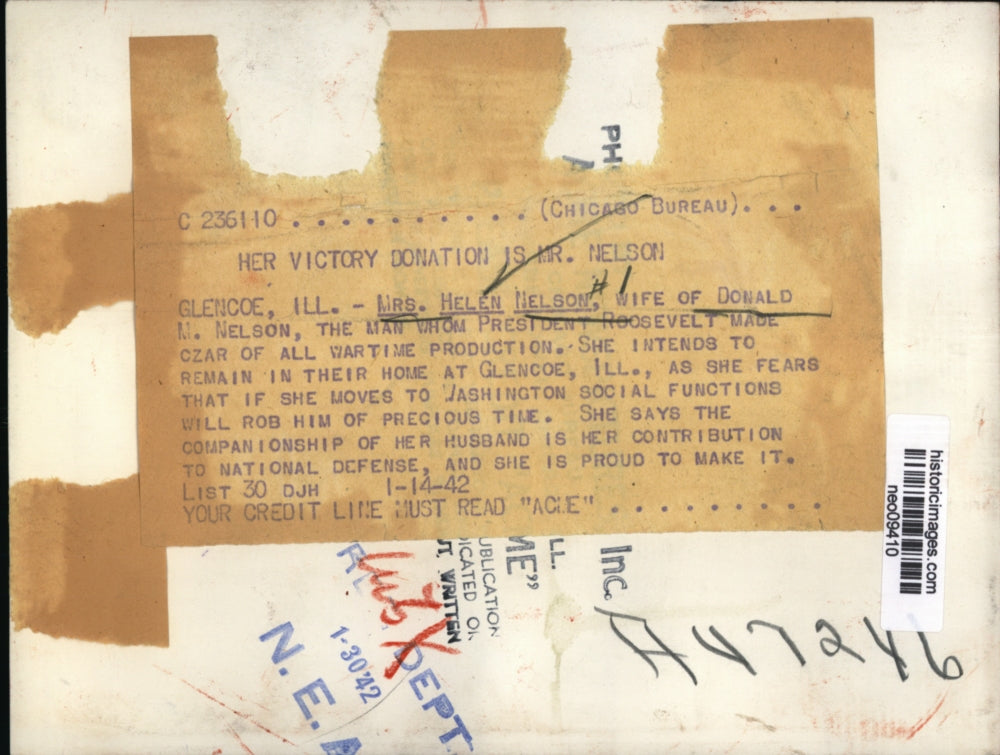 PH
A
C 236110 . . . . . . . . . . (CHICAGO BUREAU). . .
HER VICTORY DONATION IS MR. NELSON
#1
GLENCOE, ILL. - MRS. HELEN NELSON, WIFE OF DONALD
M. NELSON, THE MAN WHOM PRESIDENT ROOSEVELT MADE
CZAR OF ALL WARTIME PRODUCTION. SHE INTENDS TO
REMAIN IN THEIR HOME AT GLENCOE, ILL., AS SHE FEARS
THAT IF SHE MOVES TO WASHINGTON SOCIAL FUNCTIONS
WILL ROB HIM OF PRECIOUS TIME. SHE SAYS THE
COMPANIONSHIP OF HER HUSBAND IS HER CONTRIBUTION
TO NATIONAL DEFENSE, AND SHE IS PROUD TO MAKE IT.
LIST 30 DJH 1-14-42
YOUR CREDIT LINE MUST READ "ACME" . . . . . . . . . .
historicimages.com
neo09410
Inc.
LL.
ME"
UBLICATION
ICATED ON
T WRITTEN
DEPT.
1-30'42
N. E. A